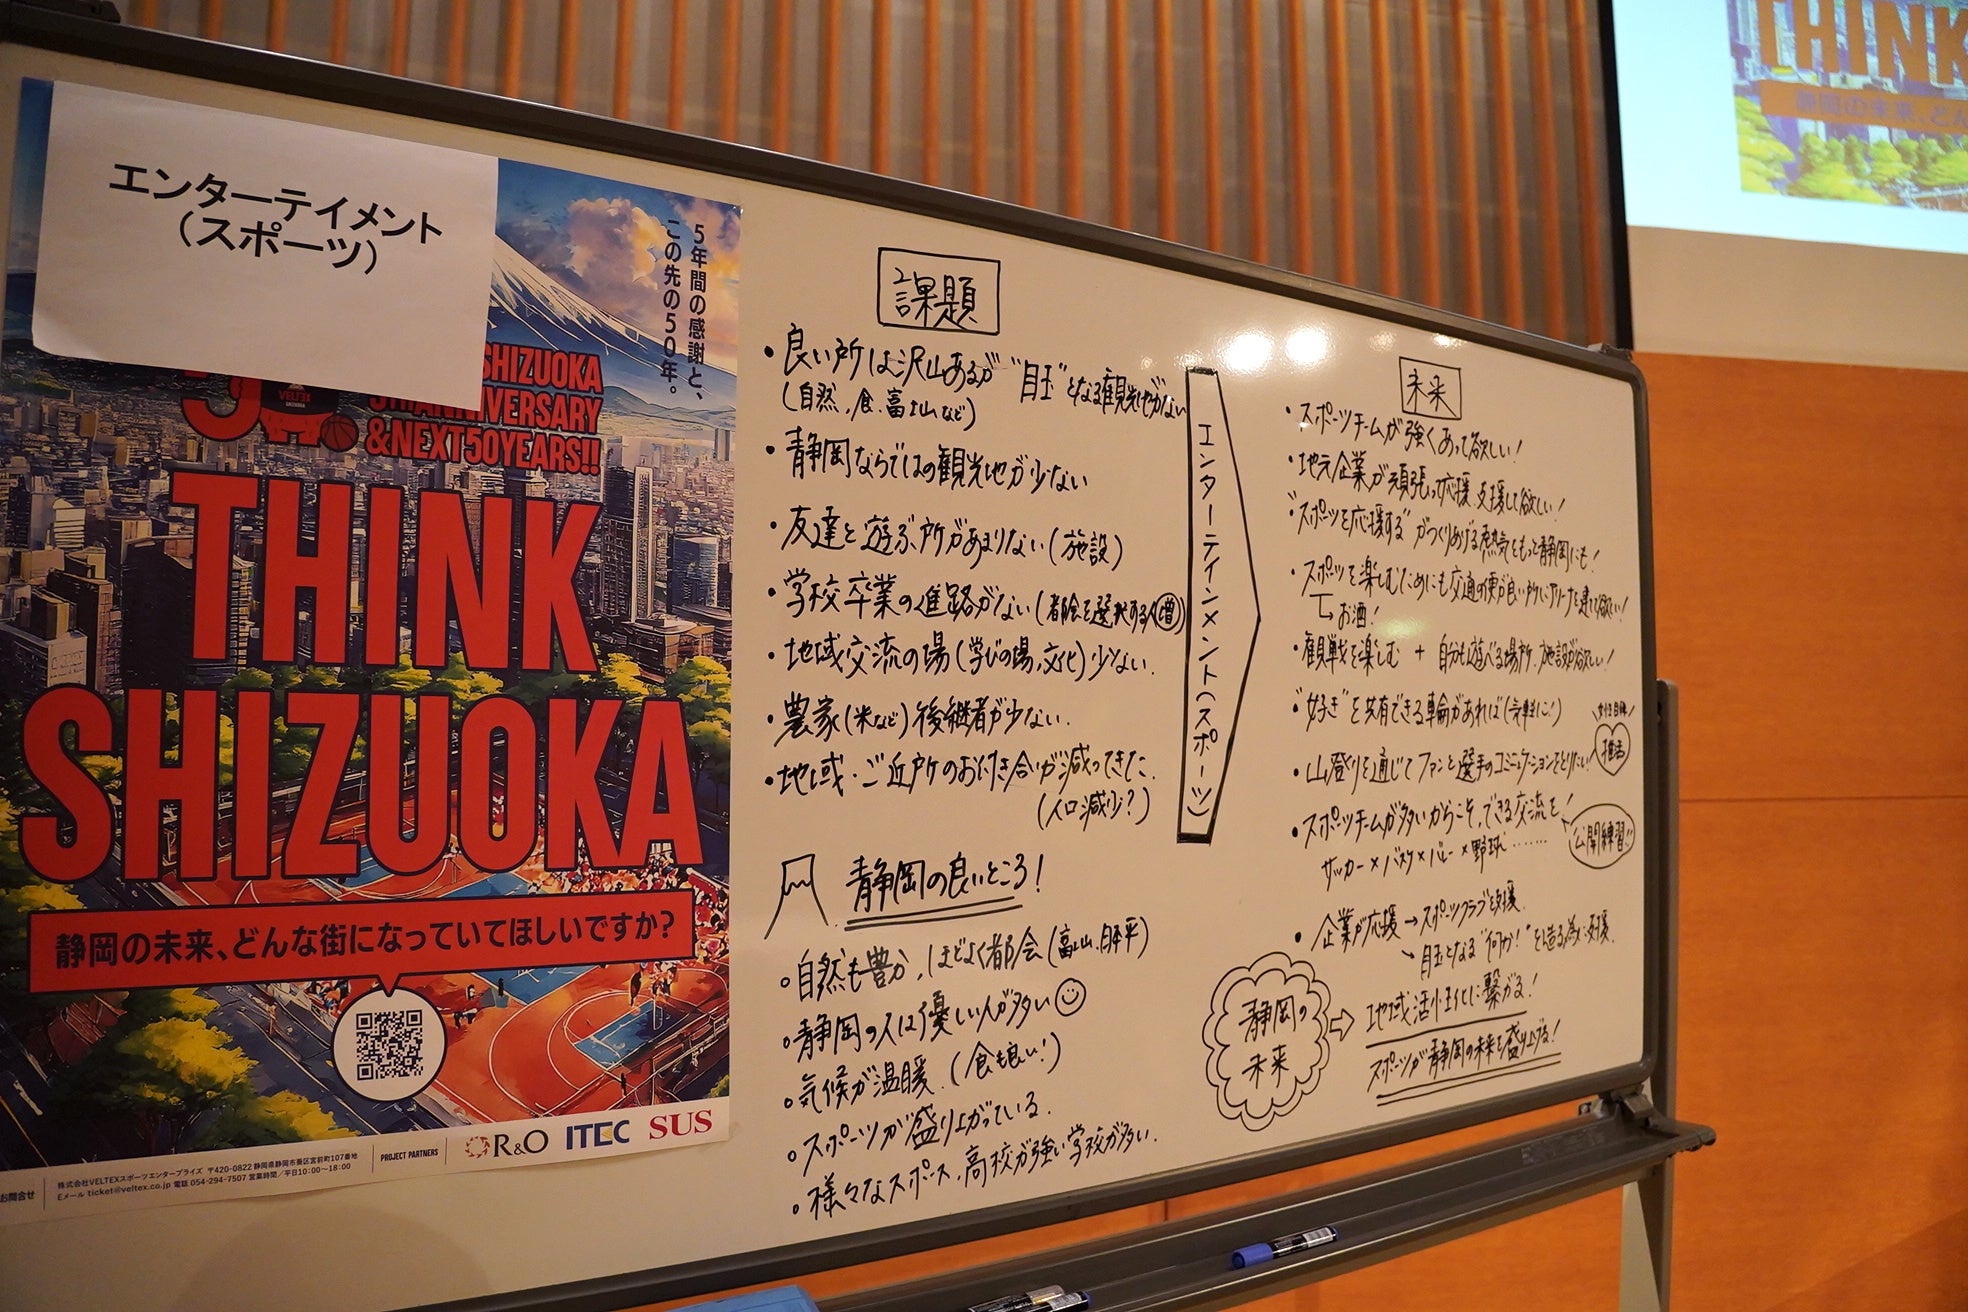 エンターテイメント
(スポーツ)
5年間の感謝と、
この先の50年。
SHIZUOKA
5TH ANNIVERSARY
&NEXT50YEARS!!
VELTEX
THINK
SHIZUOKA
静岡の未来、どんな街になっていてほしいですか?
お問合せ
株式会社VELTEXスポーツエンタープライズ 〒420-0822 静岡県静岡市葵区宮前町107番地
Eメール ticket@veltex.co.jp 電話 054-294-7507 営業時間/平日10:00~18:00
PROJECT PARTNERS
R&O ITEC SUS
課題
・良い所は沢山あるが "目玉"となる観光地がない
(自然、食、富士山など)
・静岡ならではの観光地が少ない
・友達と遊ぶ所があまりない(施設)
・学校卒業の進路がない(都会を選択する人増)
・地域交流の場(学びの場、文化)少ない.
・農家(米など)後継者が少ない.
・地域・ご近所のお付き合いが減ってきた.
(人口減少?)
静岡の良いところ!
○自然も豊か、ほどよく都会(富士山、日本平)
○静岡の人は優しい人が多い
○気候が温暖.(食も良い!)
○スポーツが盛り上がっている.
○様々なスポーツ、高校が強い学校が多い.
エンターテインメント(スポーツ)
未来
・スポーツチームが強くあって欲しい!
・地元企業が頑張って応援、支援して欲しい!
・"スポーツを応援する"がつくりあげる熱気をもっと静岡にも!
・スポーツを楽しむためにも交通の便が良い所にアリーナを建て欲しい!
お酒!
・観戦を楽しむ + 自分も遊べる場所、施設が欲しい!
・"好き"を共有できる車輪があれば
・山登りを通じてファンと選手のコミュニケーションをとりたい!
推活
・スポーツチームが多いからこそ、できる交流を!
サッカー×バスケ×バレー×野球……
公開練習!!
・企業が応援→スポーツクラブを支援
→目玉となる"何か!"を造る為に支援.
静岡の
未来
⇒ 地域活性化に繋がる!
スポーツが静岡の未来を盛り上げる!
THINK
静岡の未来、どん